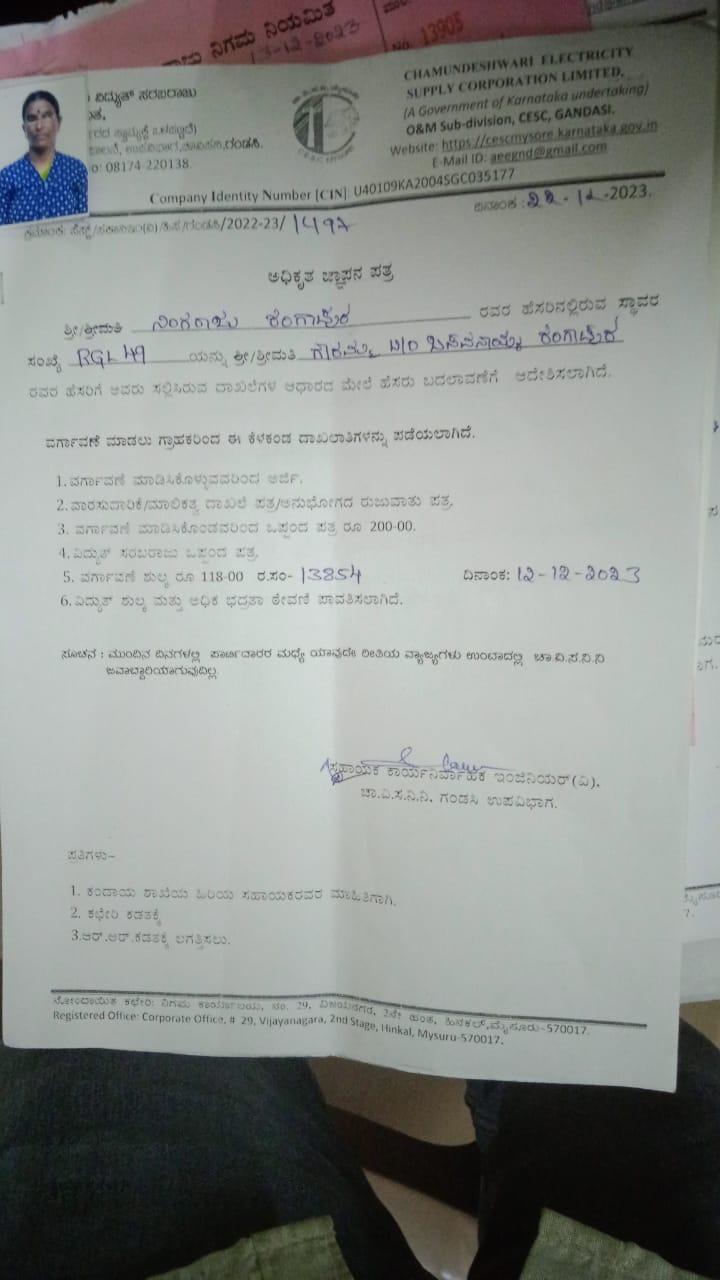 ನಿಗಮ ನಿಯಮಿತ
13-12-2023
No. 13905
ವಿದ್ಯುತ್ ಸರಬರಾಜು
CHAMUNDESHWARI ELECTRICITY
SUPPLY CORPORATION LIMITED.
(A Government of Karnataka undertaking)
O&M Sub-division, CESC, GANDASI.
Website: https://cescmysore.karnataka.gov.in
E-Mail ID: aeegnd@gmail.com
08174-220138.
Company Identity Number [CIN]: U40109KA2004SGC035177
/2022-23/ 1497
ದಿನಾಂಕ : 22-12-2023.
ಅಧಿಕೃತ ಜ್ಞಾಪನ ಪತ್ರ
ಶ್ರೀ/ಶ್ರೀಮತಿ ನಿಂಗರಾಜು ರಂಗಾಪುರ ರವರ ಹೆಸರಿನಲ್ಲಿರುವ ಸ್ಥಾವರ
ಸಂಖ್ಯೆ RGL 49 ಯನ್ನು ಶ್ರೀ/ಶ್ರೀಮತಿ ಗೌರಮ್ಮ W/O ಬಸವನಾಯ್ಕ ರಂಗಾಪುರ
ರವರ ಹೆಸರಿಗೆ ಅವರು ಸಲ್ಲಿಸಿರುವ ದಾಖಲೆಗಳ ಆಧಾರದ ಮೇಲೆ ಹೆಸರು ಬದಲಾವಣೆಗೆ ಆದೇಶಿಸಲಾಗಿದೆ.
ವರ್ಗಾವಣೆ ಮಾಡಲು ಗ್ರಾಹಕರಿಂದ ಈ ಕೆಳಕಂಡ ದಾಖಲಾತಿಗಳನ್ನು ಪಡೆಯಲಾಗಿದೆ.
1. ವರ್ಗಾವಣೆ ಮಾಡಿಸಿಕೊಳ್ಳುವವರಿಂದ ಅರ್ಜಿ.
2. ವಾರಸುದಾರಿಕೆ/ಮಾಲಿಕತ್ವ ದಾಖಲೆ ಪತ್ರ/ಅನುಭೋಗದ ರುಜುವಾತು ಪತ್ರ.
3. ವರ್ಗಾವಣೆ ಮಾಡಿಸಿಕೊಂಡವರಿಂದ ಒಪ್ಪಂದ ಪತ್ರ ರೂ 200-00.
4. ವಿದ್ಯುತ್ ಸರಬರಾಜು ಒಪ್ಪಂದ ಪತ್ರ.
5. ವರ್ಗಾವಣೆ ಶುಲ್ಕ ರೂ 118-00 ರ.ಸಂ- 13854 ದಿನಾಂಕ: 12-12-2023
6. ವಿದ್ಯುತ್ ಶುಲ್ಕ ಮತ್ತು ಅಧಿಕ ಭದ್ರತಾ ಠೇವಣಿ ಪಾವತಿಸಲಾಗಿದೆ.
ಸೂಚನೆ : ಮುಂದಿನ ದಿನಗಳಲ್ಲಿ ಪಾರ್ಟಿದಾರರ ಮಧ್ಯೆ ಯಾವುದೇ ರೀತಿಯ ವ್ಯಾಜ್ಯಗಳು ಉಂಟಾದಲ್ಲಿ ಚಾ.ವಿ.ಸ.ನಿ.ನಿ
ಜವಾಬ್ದಾರಿಯಾಗುವುದಿಲ್ಲ.
ಸಹಾಯಕ ಕಾರ್ಯನಿರ್ವಾಹಕ ಇಂಜಿನಿಯರ್(ವಿ).
ಚಾ.ವಿ.ಸ.ನಿ.ನಿ. ಗಂಡಸಿ ಉಪವಿಭಾಗ.
ಪ್ರತಿಗಳು-
1. ಕಂದಾಯ ಶಾಖೆಯ ಹಿರಿಯ ಸಹಾಯಕರವರ ಮಾಹಿತಿಗಾಗಿ.
2. ಕಛೇರಿ ಕಡತಕ್ಕೆ
3.ಆರ್.ಆರ್.ಕಡತಕ್ಕೆ ಲಗತ್ತಿಸಲು.
ನೋಂದಾಯಿತ ಕಛೇರಿ: ನಿಗಮ ಕಾರ್ಯಾಲಯ, ನಂ. 29, ವಿಜಯನಗರ, 2ನೇ ಹಂತ, ಹಿನಕಲ್,ಮೈಸೂರು-570017.
Registered Office: Corporate Office, # 29, Vijayanagara, 2nd Stage, Hinkal, Mysuru-570017.